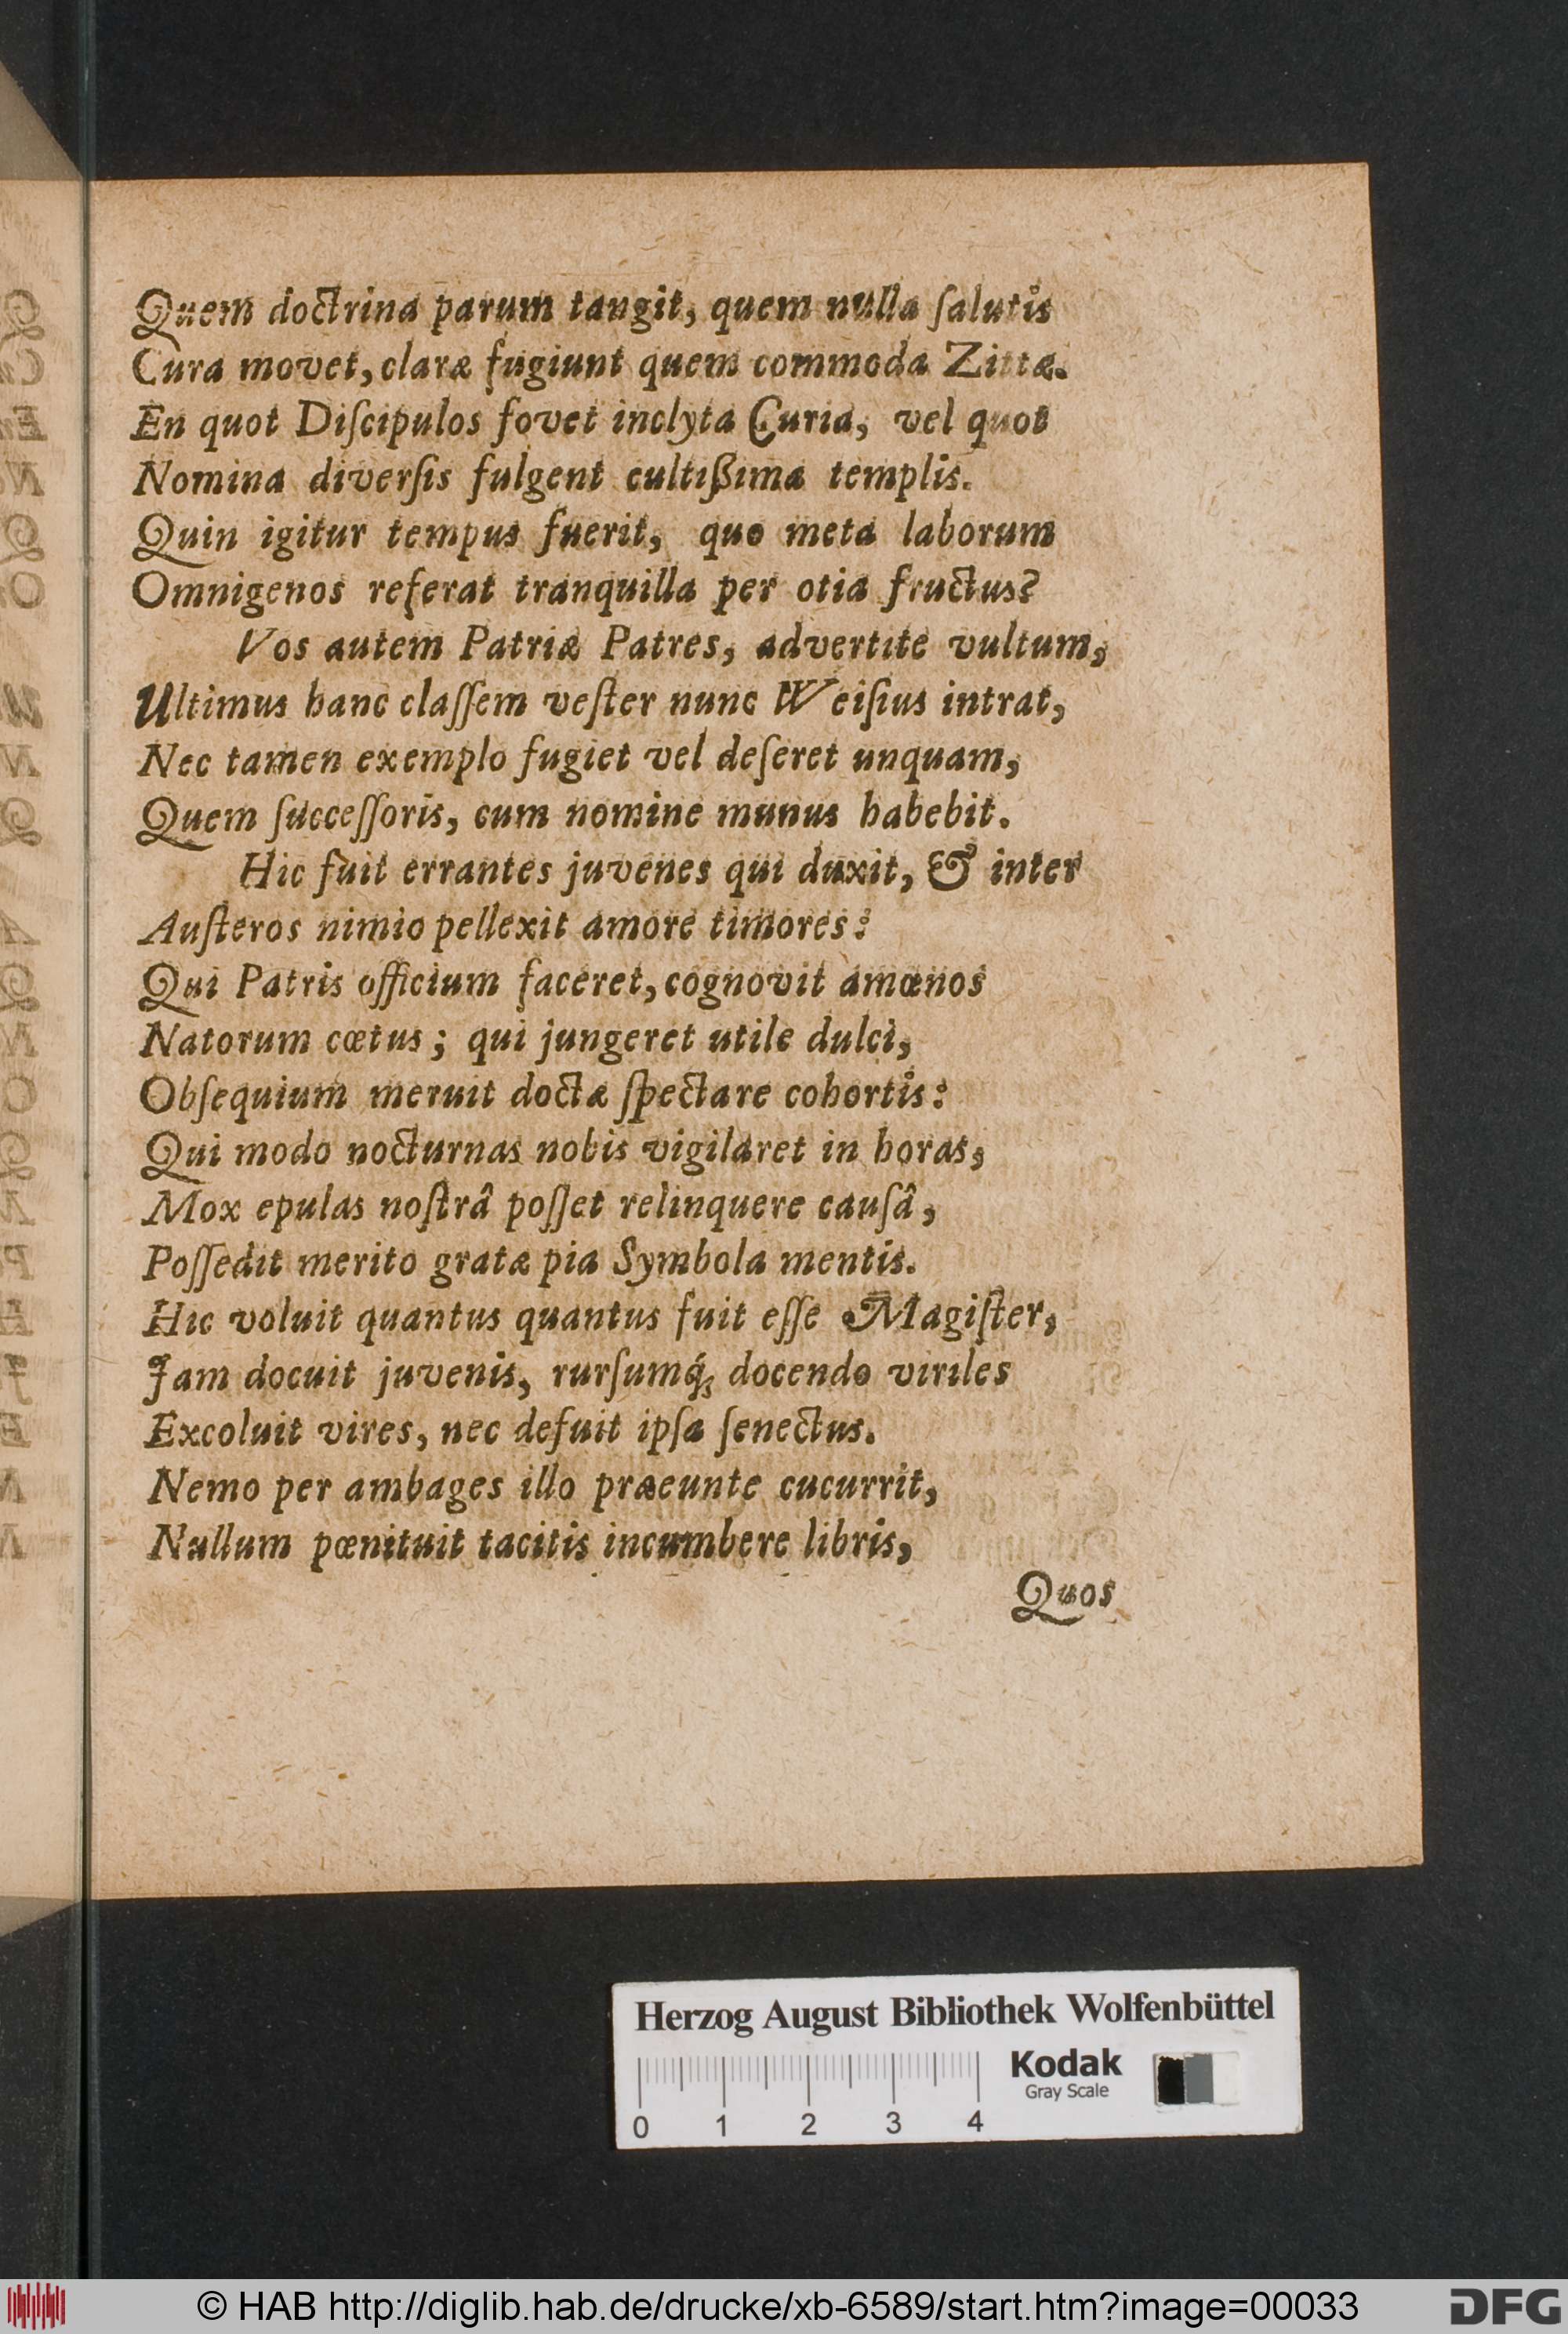 Quem doctrina parum tangit, quem nulla ſalutis
Cura movet, claræ fugiunt quem commoda Zittæ.
En quot Diſcipulos fovet inclyta Curia, vel quot
Nomina diverſis fulgent cultißima templis.
Quin igitur tempus fuerit, quo meta laborum
Omnigenos referat tranquilla per otia fructus?
Vos autem Patriæ Patres, advertite vultum,
Ultimus hanc claſſem veſter nunc Weiſius intrat,
Nec tamen exemplo fugiet vel deſeret unquam,
Quem ſucceſſoris, cum nomine munus habebit.
Hic fuit errantes juvenes qui duxit, & inter
Auſteros nimio pellexit amore timores:
Qui Patris officium faceret, cognovit amœnos
Natorum cœtus; qui jungeret utile dulci,
Obſequium meruit doctæ ſpectare cohortis:
Qui modo nocturnas nobis vigilaret in horas,
Mox epulas noſtrâ poſſet relinquere cauſâ,
Poſſedit merito gratæ pia Symbola mentis.
Hic voluit quantus quantus fuit eſſe Magiſter,
Jam docuit juvenis, rurſumq́; docendo viriles
Excoluit vires, nec defuit ipſa ſenectus.
Nemo per ambages illo præeunte cucurrit,
Nullum pœnituit tacitis incumbere libris,
Quos
Herzog August Bibliothek Wolfenbüttel
Kodak
Gray Scale
0 1 2 3 4
© HAB http://diglib.hab.de/drucke/xb-6589/start.htm?image=00033
DFG